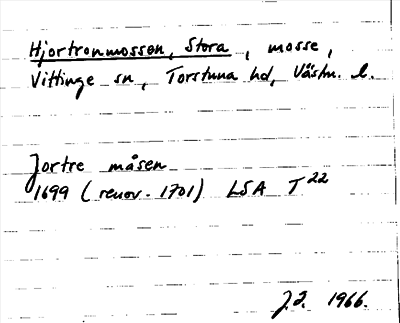 Hjortronmossen, Stora, mosse,
Vittinge sn, Torstuna hd, Västm. l.
Jortre måsen
1699 (renov. 1701) LSA T 22
J.I. 1966.